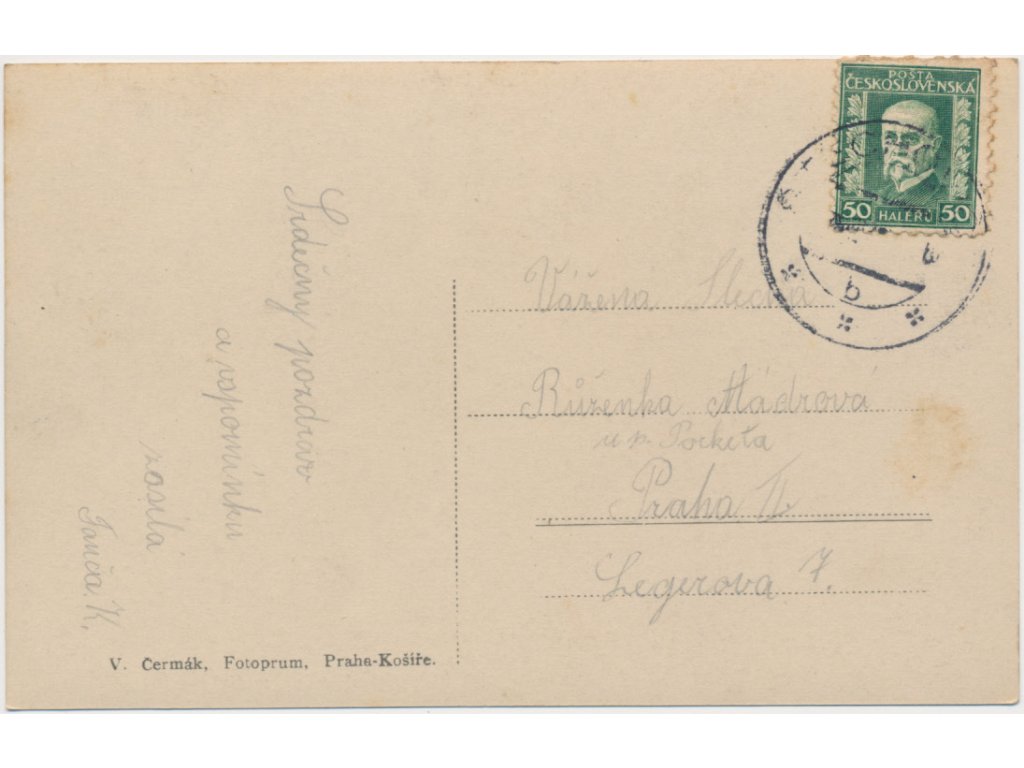 Srdečný pozdrav
a vzpomínku
zasílá
K.
V. Čermák, Fotoprum, Praha-Košíře.
POŠTA
ČESKOSLOVENSKÁ
50 HALÉŘŮ 50
b
Vážená Slečna
Růženka Mádrová
u p. Pocketa
Praha II.
Legerova 7.